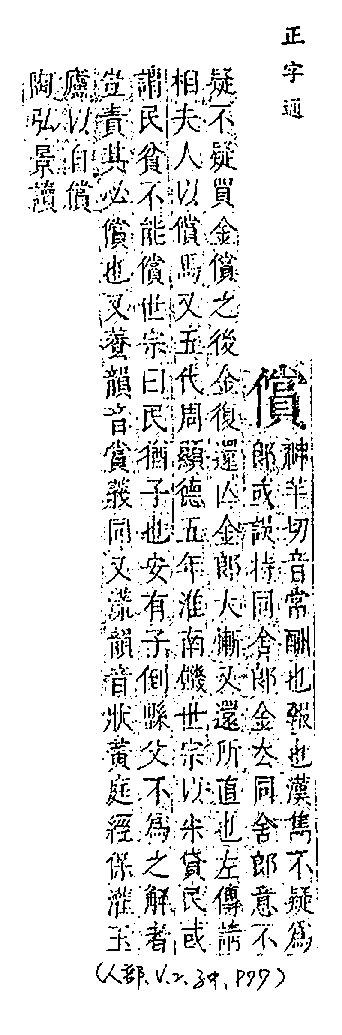 正字通
償
神羊切音常酬也報也漢雋不疑為
郎或誤持同舍郎金去同舍郎意不
疑不疑買金償之後金復還亡金郎大慚又還所直也左傳請
相夫人以償馬又五代周顯德五年淮南饑世宗以米貸民或
謂民貧不能償世宗曰民猶子也安有子倒縣父不為之解者
豈責其必償也又養韻音賞義同又漾韻音狀黃庭經保灌玉
廬以自償
陶弘景讀
(人部.V.2.34.P77)